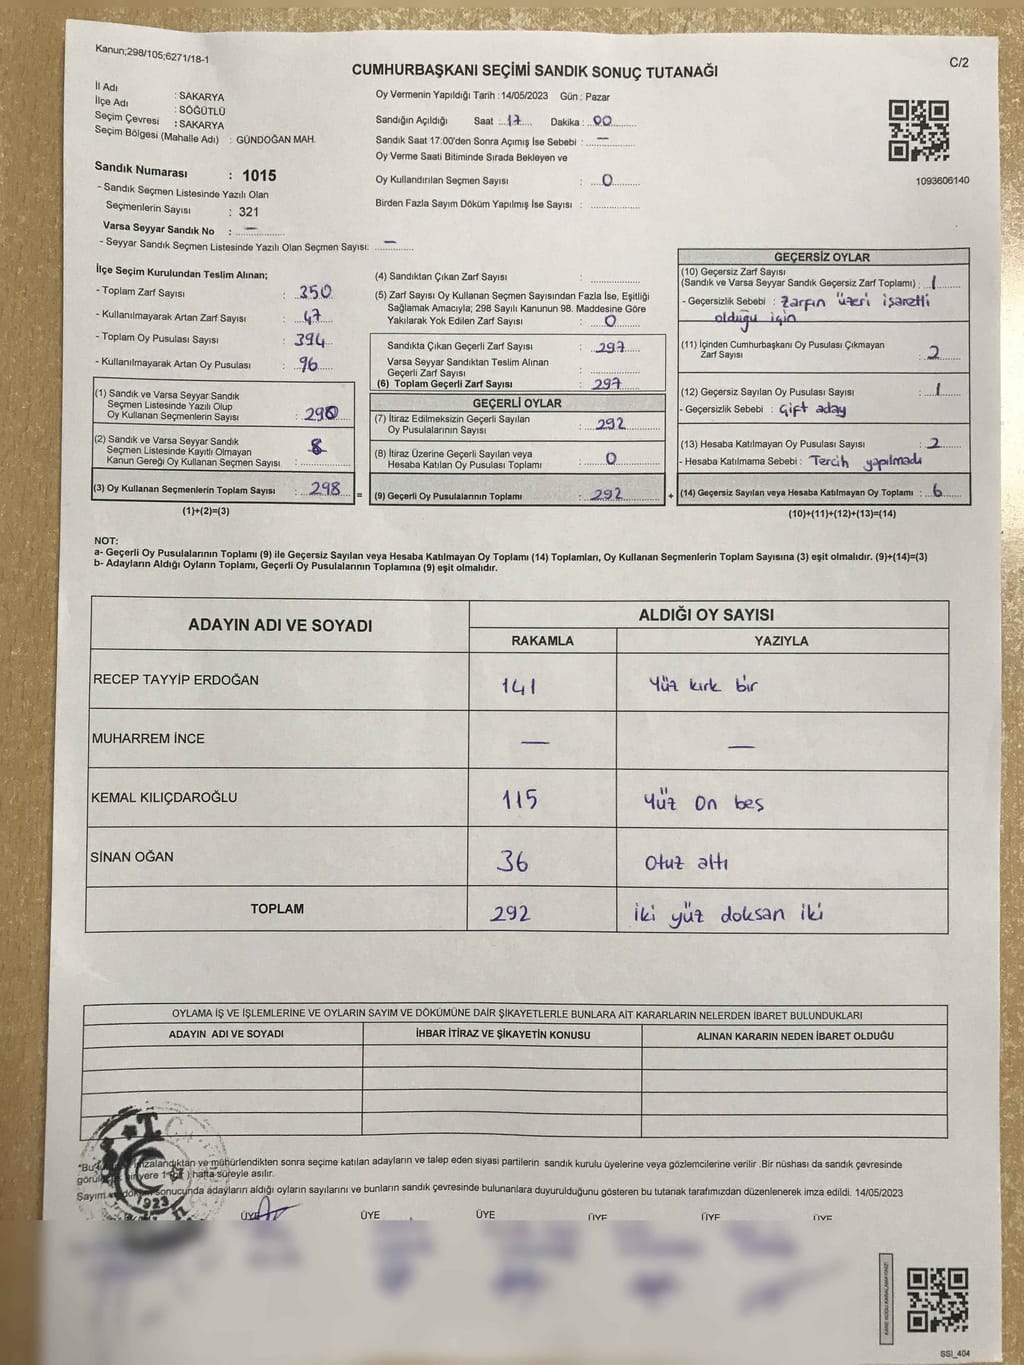 Kanun;298/105;6271/18-1
C/2
CUMHURBAŞKANI SEÇİMİ SANDIK SONUÇ TUTANAĞI
İl Adı : SAKARYA
İlçe Adı : SÖĞÜTLÜ
Seçim Çevresi : SAKARYA
Seçim Bölgesi (Mahalle Adı) : GÜNDOĞAN MAH.
Sandık Numarası : 1015
- Sandık Seçmen Listesinde Yazılı Olan
Seçmenlerin Sayısı : 321
Varsa Seyyar Sandık No : —
- Seyyar Sandık Seçmen Listesinde Yazılı Olan Seçmen Sayısı: —
Oy Vermenin Yapıldığı Tarih : 14/05/2023 Gün : Pazar
Sandığın Açıldığı Saat : 17 Dakika : 00
Sandık Saat 17:00'den Sonra Açımış İse Sebebi : —
Oy Verme Saati Bitiminde Sırada Bekleyen ve
Oy Kullandırılan Seçmen Sayısı : 0
Birden Fazla Sayım Döküm Yapılmış İse Sayısı :
1093606140
İlçe Seçim Kurulundan Teslim Alınan;
- Toplam Zarf Sayısı : 350
- Kullanılmayarak Artan Zarf Sayısı : 47
- Toplam Oy Pusulası Sayısı : 394
- Kullanılmayarak Artan Oy Pusulası : 96
(1) Sandık ve Varsa Seyyar Sandık
Seçmen Listesinde Yazılı Olup
Oy Kullanan Seçmenlerin Sayısı : 290
(2) Sandık ve Varsa Seyyar Sandık
Seçmen Listesinde Kayıtlı Olmayan
Kanun Gereği Oy Kullanan Seçmen Sayısı : 8
(3) Oy Kullanan Seçmenlerin Toplam Sayısı : 298 =
(1)+(2)=(3)
(4) Sandıktan Çıkan Zarf Sayısı :
(5) Zarf Sayısı Oy Kullanan Seçmen Sayısından Fazla İse, Eşitliği
Sağlamak Amacıyla; 298 Sayılı Kanunun 98. Maddesine Göre
Yakılarak Yok Edilen Zarf Sayısı : 0
Sandıkta Çıkan Geçerli Zarf Sayısı : 297
Varsa Seyyar Sandıktan Teslim Alınan
Geçerli Zarf Sayısı :
(6) Toplam Geçerli Zarf Sayısı : 297
GEÇERLİ OYLAR
(7) İtiraz Edilmeksizin Geçerli Sayılan
Oy Pusulalarının Sayısı : 292
(8) İtiraz Üzerine Geçerli Sayılan veya
Hesaba Katılan Oy Pusulası Toplamı : 0
(9) Geçerli Oy Pusulalarının Toplamı : 292 +
GEÇERSİZ OYLAR
(10) Geçersiz Zarf Sayısı
(Sandık ve Varsa Seyyar Sandık Geçersiz Zarf Toplamı) : 1
- Geçersizlik Sebebi : Zarfın üzeri işaretli
olduğu için
(11) İçinden Cumhurbaşkanı Oy Pusulası Çıkmayan
Zarf Sayısı : 2
(12) Geçersiz Sayılan Oy Pusulası Sayısı : 1
- Geçersizlik Sebebi : Çift aday
(13) Hesaba Katılmayan Oy Pusulası Sayısı : 2
- Hesaba Katılmama Sebebi : Tercih yapılmadı
(14) Geçersiz Sayılan veya Hesaba Katılmayan Oy Toplamı : 6
(10)+(11)+(12)+(13)=(14)
NOT:
a- Geçerli Oy Pusulalarının Toplamı (9) ile Geçersiz Sayılan veya Hesaba Katılmayan Oy Toplamı (14) Toplamları, Oy Kullanan Seçmenlerin Toplam Sayısına (3) eşit olmalıdır. (9)+(14)=(3)
b- Adayların Aldığı Oyların Toplamı, Geçerli Oy Pusulalarının Toplamına (9) eşit olmalıdır.
ADAYIN ADI VE SOYADI
ALDIĞI OY SAYISI
RAKAMLA YAZIYLA
RECEP TAYYİP ERDOĞAN 141 Yüz kırk bir
MUHARREM İNCE — —
KEMAL KILIÇDAROĞLU 115 Yüz On beş
SİNAN OĞAN 36 Otuz altı
TOPLAM 292 İki yüz doksan iki
OYLAMA İŞ VE İŞLEMLERİNE VE OYLARIN SAYIM VE DÖKÜMÜNE DAİR ŞİKAYETLERLE BUNLARA AİT KARARLARIN NELERDEN İBARET BULUNDUKLARI
ADAYIN ADI VE SOYADI İHBAR İTİRAZ VE ŞİKAYETİN KONUSU ALINAN KARARIN NEDEN İBARET OLDUĞU
T.C.
1923
"Bu imzalandıktan ve mühürlendikten sonra seçime katılan adayların ve talep eden siyasi partilerin sandık kurulu üyelerine veya gözlemcilerine verilir .Bir nüshası da sandık çevresinde
hafta süreyle asılır.
Sayım sonucunda adayların aldığı oyların sayılarını ve bunların sandık çevresinde bulunanlara duyurulduğunu gösteren bu tutanak tarafımızdan düzenlenerek imza edildi. 14/05/2023
ÜYE ÜYE ÜYE ÜYE ÜYE ÜYE
SSI_404